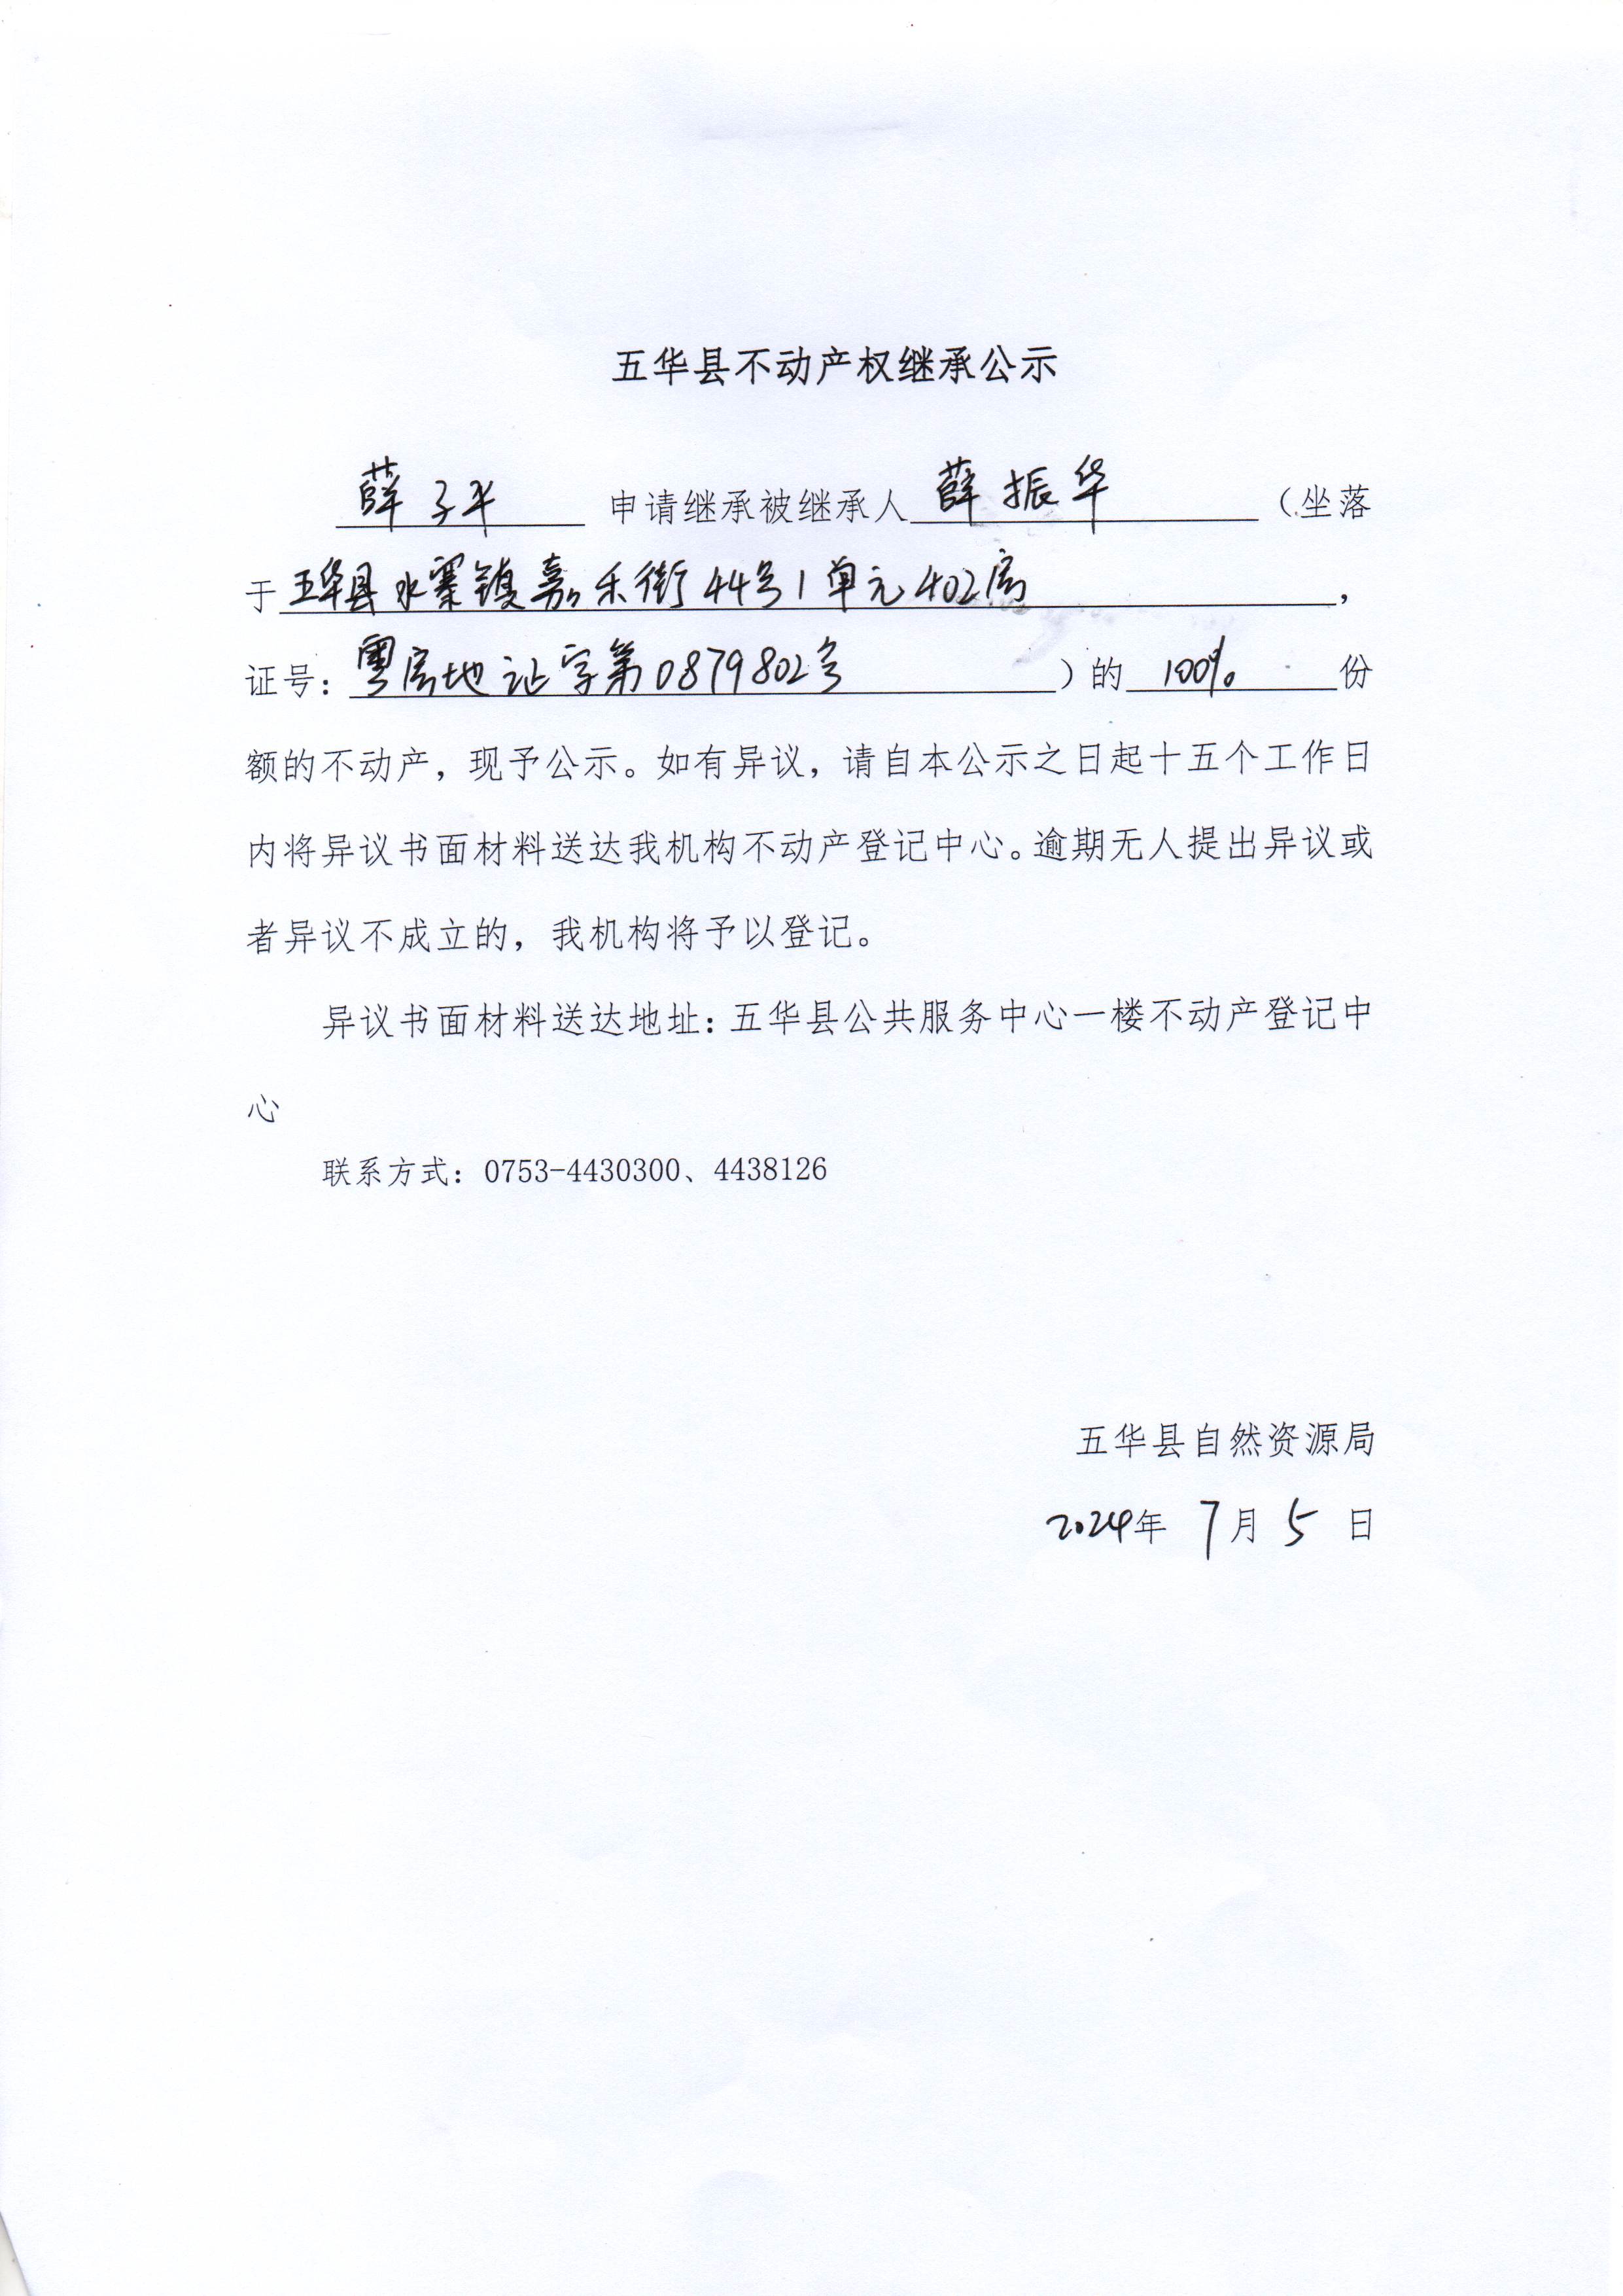 五华县不动产权继承公示
薛子平 申请继承被继承人 薛振华 （坐落
于 五华县水寨镇嘉乐街44号1单元402房 ，
证号：粤房地证字第0879802号 ）的 100% 份
额的不动产，现予公示。如有异议，请自本公示之日起十五个工作日
内将异议书面材料送达我机构不动产登记中心。逾期无人提出异议或
者异议不成立的，我机构将予以登记。
异议书面材料送达地址：五华县公共服务中心一楼不动产登记中
心
联系方式：0753-4430300、4438126
五华县自然资源局
2024年 7月 5 日